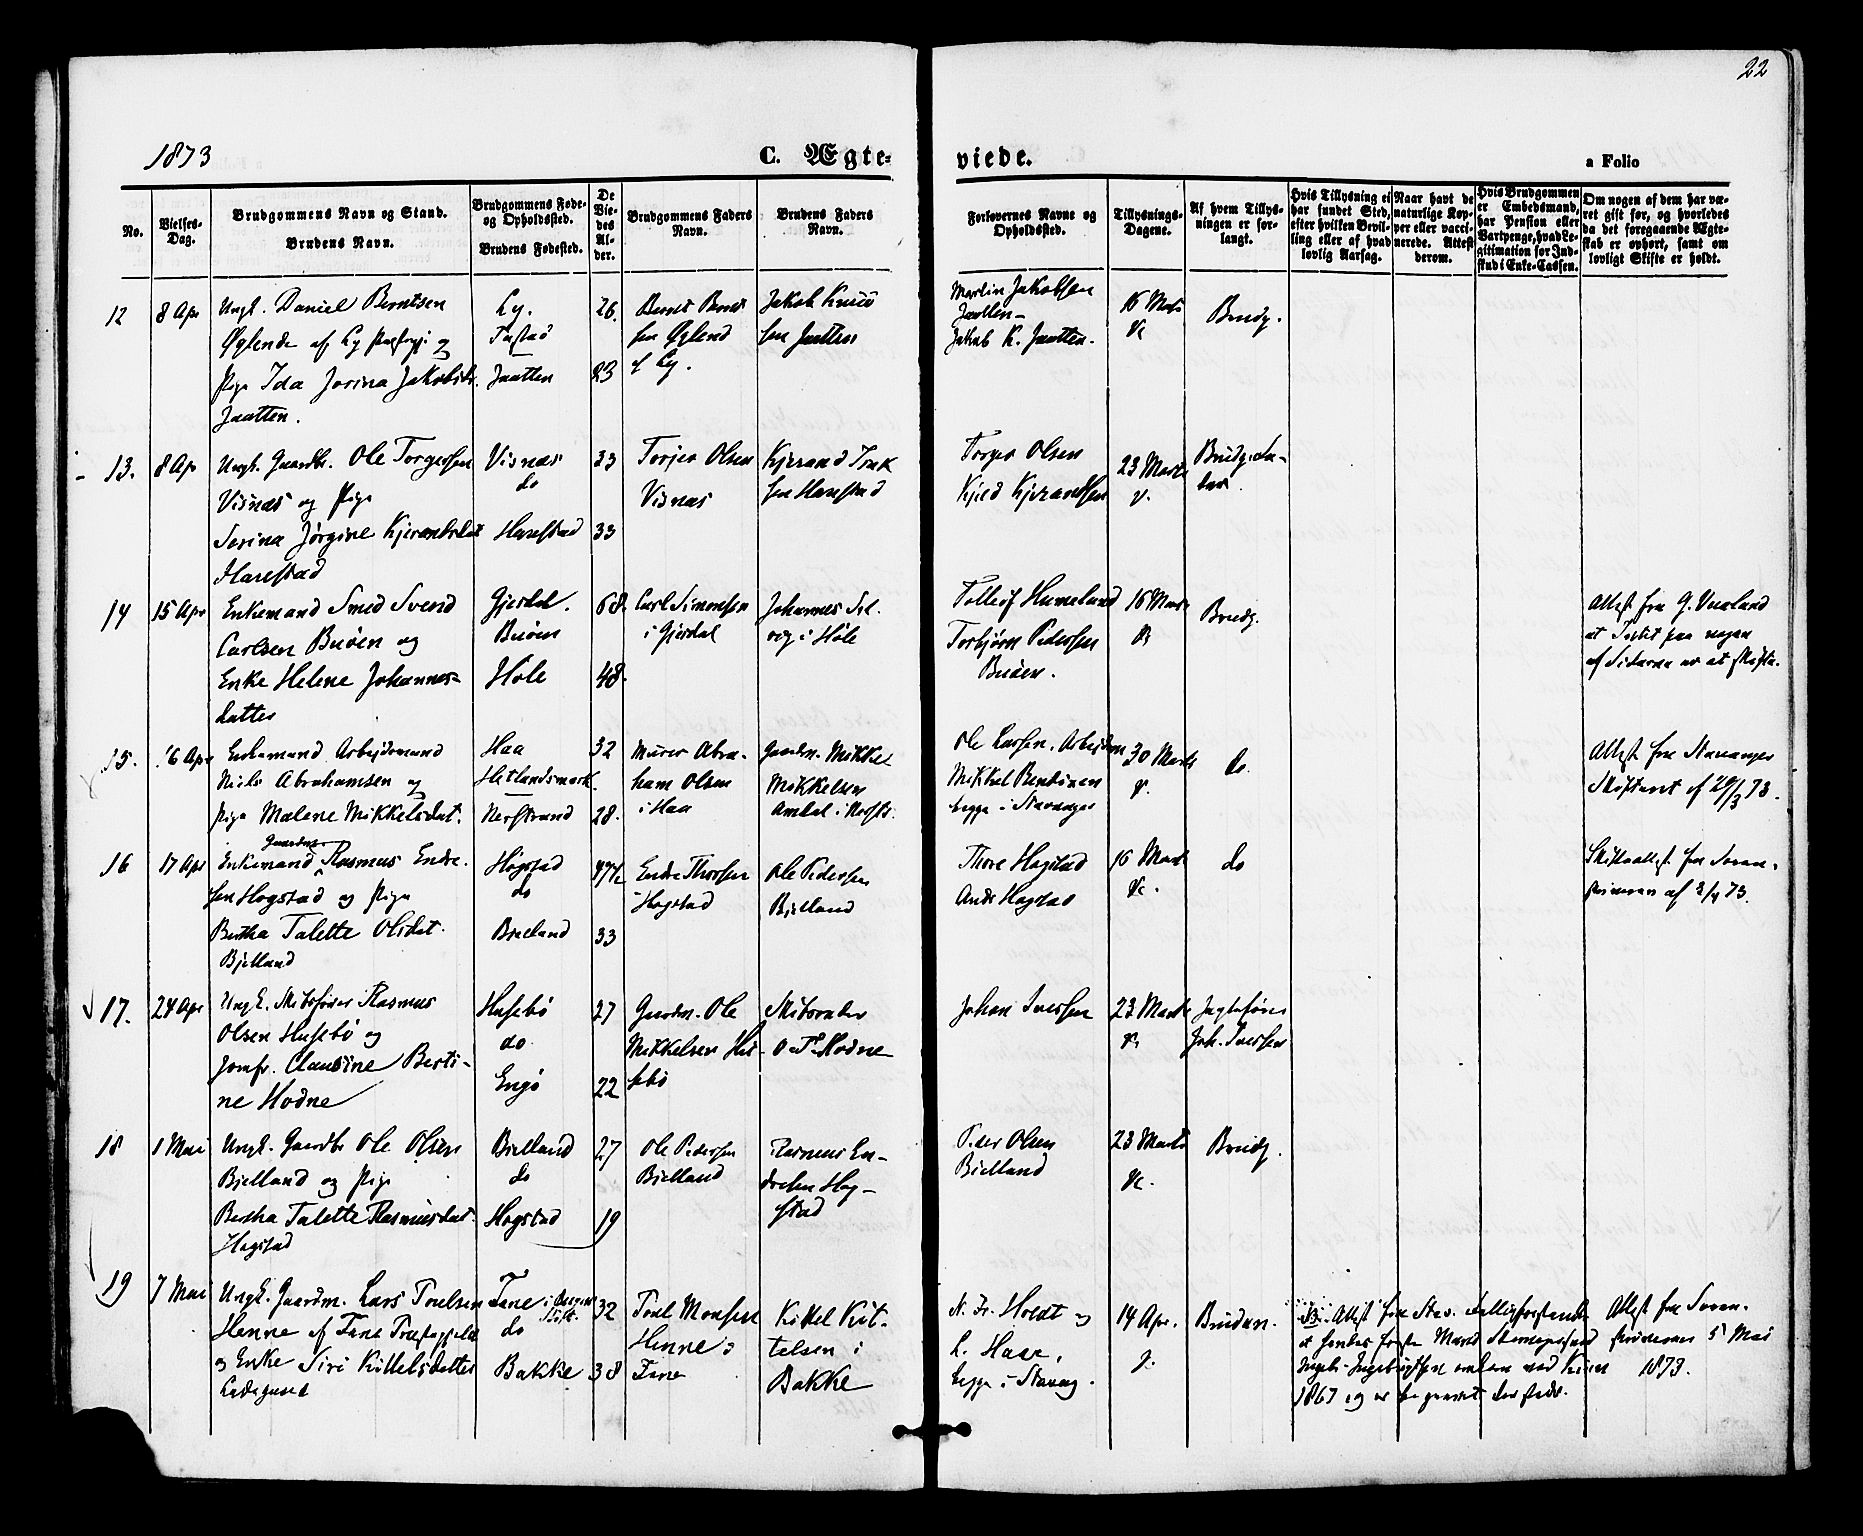 22
1873
C. Ægte-
viede.
a Folio
No.
Vielses-Dag.
Brudgommens Navn og Stand.
Brudens Navn.
Brudgommens Føde- og Opholdssted.
Brudens Fødested.
De Viedes Alder.
Brudgommens Faders Navn.
Brudens Faders Navn.
Forlovernes Navne og Opholdssted.
Tillysnings-Dagene.
Af hvem Tillysningen er forlangt.
Hvis Tillysning ei har fundet Sted, efter hvilken Bevilling eller af hvad lovlig Aarsag.
Naar havt de naturlige Kopper eller vaccinerede. Attest derom.
Hvis Brudgommen er Embedsmand, har Pension eller Vartpenge, hvad Legitimation for Indskud i Enke-Cassen.
Om nogen af dem har været gift før, og hvorledes da det foregaaende Ægteskab er ophørt, samt om lovligt Skifte er holdt.
12 8 Apr Ungk. Daniel Berntsen
Øglende af Ly Præstegj og
Pige Ida Jorina Jakobsd.
Jaatten.
Ly.
Tastad
Jaatten
26.
23
Bernt Bernt
sen Øglend
i Ly.
Jakob Knud
sen Jaatten
Martin Jakobsen
Jaatten
Jakob K. Jaatten.
16 Marts
Brudg.
13. 8 Ap Ungk. Gaardbr. Ole Torgersen
Visnæs og Pige
Serina Jørgine Kjerandsdat
Harestad
Visnæs
do
Harestad
33
33
Torjer Olsen
Visnæs
Kjerand Isak
sen Harestad
Torger Olsen
Kjeld Kjerandsen
23 Marts
14 15 Apr Enkemand Smed Svend
Carlsen Buøen og
Enke Helene Johannes-
datter
Gjesdal.
Buøen
Høle
68.
48.
Carl Simonsen
i Gjesdal
Johannes Sel
vig i Høle
Tolleif Humeland
Torbjørn Pedersen
Buøen.
16 Marts
Brudg.
Attest fra G. Vueland
at Intet paa nogen
af Siderne er at skifte.
15. 16 Apr Enkemand Arbeidsmand
Niels Abrahamsen og
Pige Malene Mikkelsdat.
Haa
Hetlandsmark
Nerstrand
32
28.
Murer Abra-
ham Olsen
i Haa
Gaardm. Mikkel
Mikkelsen
Amdal i Nerst.
Ole Larsen. Arbeidsm
Mikkel
begge i Stavanger
30 Marts
do.
Attest fra Stavanger
Skifteret af 29/3 73.
16 17 Apr Enkemand Gaardm. Rasmus Endre-
sen Hogstad og Pige
Bertha Talette Olsdat.
Bjelland
Høgstad
do
Bjelland
47½
33
Endre Thorsen
Hogstad
Ole Pedersen
Bjelland
Thore Hogstad
Ands Hogstad
16 Marts
do
Skifteattest fra Soren-
skriveren af 2/4 73.
17. 24 Apr Ungk. Skibsfører Rasmus
Olsen Husebø og
Jomfr. Claudine Berti-
ne Hodne
Husebø
do.
Engø
27
22
Gaardm. Ole
Mikkelsen Hu-
sebø
Skibsreder
O. T. Hodne
Johan Iversen
23 Marts
Jagtefører
Joh. Iversen
18 1 Mai Ungk. Gaardbr Ole Olsen
Bjelland og Pige
Bertha Talette Rasmusdat.
Hogstad
Bjelland
do
Hogstad
27
19
Ole Pedersen
Bjelland
Rasmus En-
dresen Hog-
stad
Peder Olsen
Bjelland
23 Marts
Brudg.
19 7 Mai Ungk. Gaardm. Lars Toelsen
Henne af Fane Præstegjeld
og Enke Siri Kittelsdatter
Ladegaard
Fane i Bergens Stift.
do
Bakke
32
38
Toel Monsen
Henne i
Fane
Kittel Kit-
telsen i
Bakke
N. Fr. Holdt og
L. Haar,
begge i Stavang.
14 Apr.
Bruden.
Attest fra Stav.
at hendes første Mand
Ingebr. Ingebrigtsen omkom ved
1867 og er
Attest fra Soren-
skriveren 5 Mai
1873.